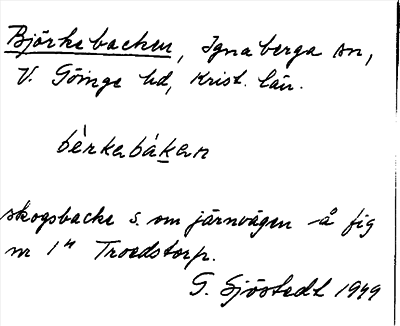 Björkebacken, Ignaberga sn,
V. Göinge hd, Krist. län.
bèrkabákan
skogsbacke s. om järnvägen å fig
nr 1⁴ Troedstorp.
G. Sjöstedt 1949